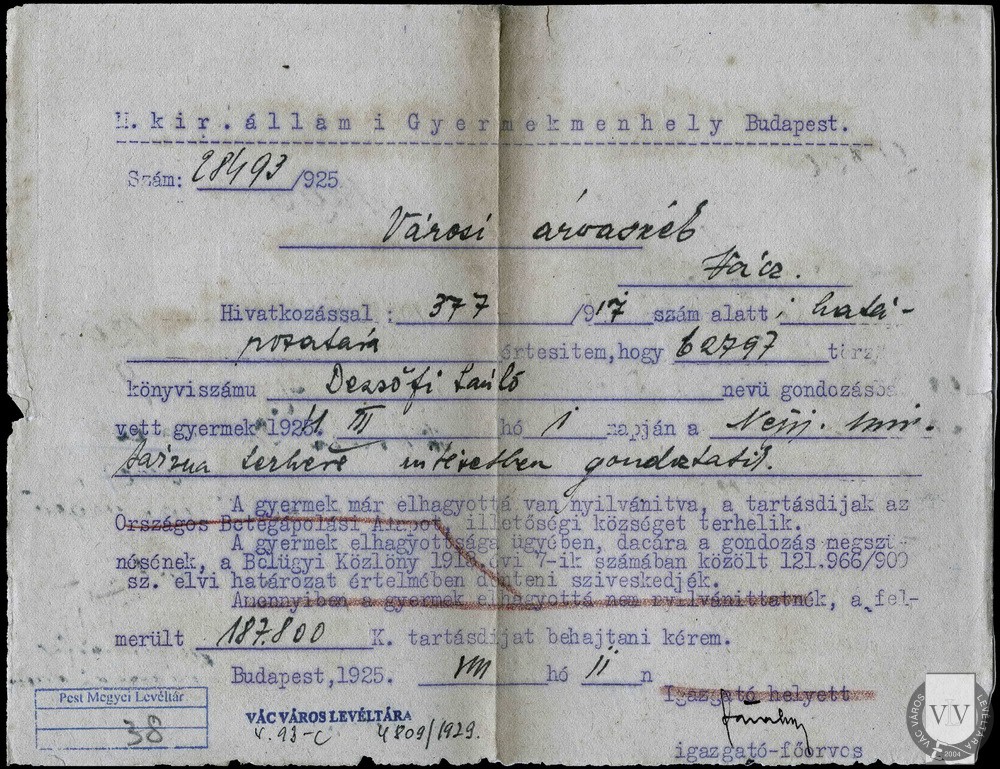 M. kir. állami Gyermekmenhely Budapest.
Szám: 28493/925
Városi árvaszék
Vácz.
Hivatkozással : 377 /917 szám alatt i hatá-
rozatára értesitem, hogy 62797 törz
könyviszámu Dezsőfi László nevü gondozásba
vett gyermek 192 III hó 1 napján a
terhére intézetben gondoztatik.
A gyermek már elhagyottá van nyilvánitva, a tartásdijak az
Országos Betegápolási Alapot, illetőségi községet terhelik.
A gyermek elhagyottsága ügyében, dacára a gondozás megszü-
nésének, a Belügyi Közlöny 191 évi 7-ik számában közölt 121.966/909
sz. elvi határozat értelmében dönteni sziveskedjék.
Amennyiben a gyermek elhagyottá nem nyilvánittatnék, a fel-
merült 187.800 K. tartásdijat behajtani kérem.
Budapest, 1925. VIII hó 11 n
Igazgató helyett
igazgató-főorvos
Pest Megyei Levéltár
38
VÁC VÁROS LEVÉLTÁRA
V. 93-c 4809/1929.
VÁC VÁROS LEVÉLTÁRA
VV
2004